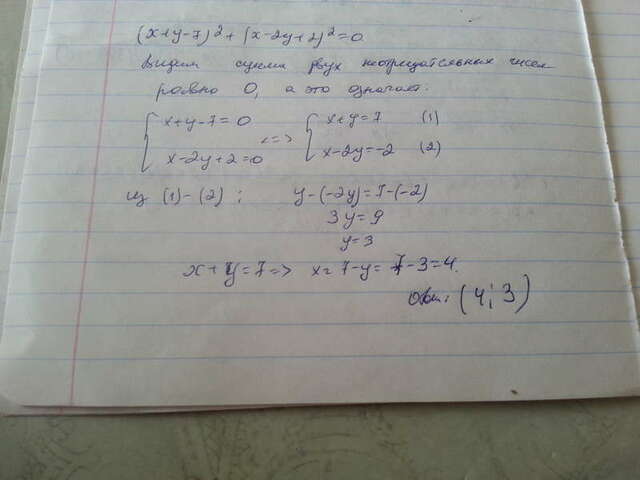 (x+y-7)²+(x-2y+2)²=0
видим сумма двух неотрицательных чисел
равно 0, а это означает:
{ x+y-7=0 { x+y=7 (1)
x-2y+2=0 <=> x-2y=-2 (2)
из (1)-(2): y-(-2y)=7-(-2)
3y=9
y=3
x+y=7=> x=7-y=7-3=4.
Ответ: (4;3)